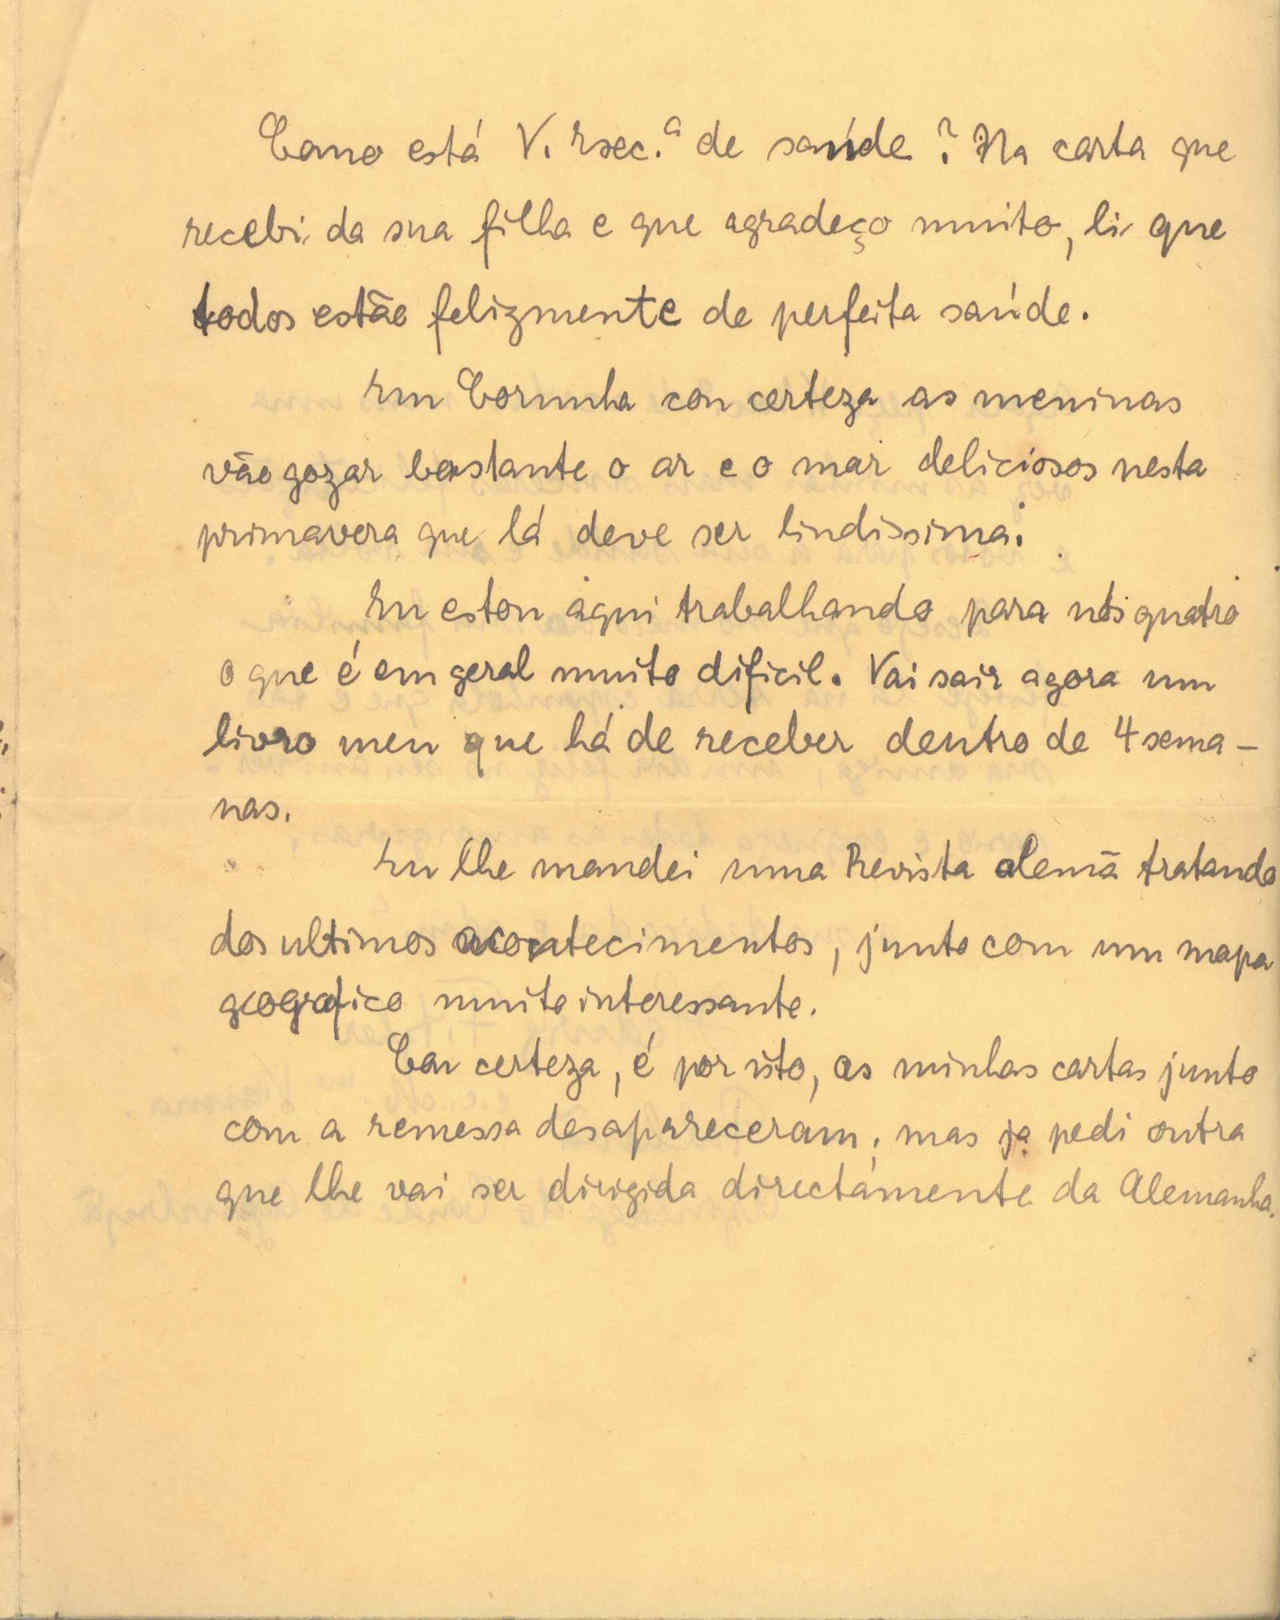 Como está V. Exsc.ª de saúde? Na carta que
recebi da sua filha e que agradeço muito, li que
todos estão felizmente de perfeita saúde.
Em Corunha con certeza as meninas
vão gozar bastante o ar e o mar deliciosos nesta
primavera que lá deve ser lindissima.
Eu estou aqui trabalhando para nós quatro
o que é em geral muito dificil. Vai sair agora um
livro meu que há de receber dentro de 4 sema-
nas.
Eu lhe mandei uma Revista alemã tratando
dos ultimos acontecimentos, junto com um mapa
geografico muito interessante.
Con certeza, é por isto, as minhas cartas junto
com a remessa desapareceram; mas ja pedi outra
que lhe vai ser dirigida directámente da Alemanha.